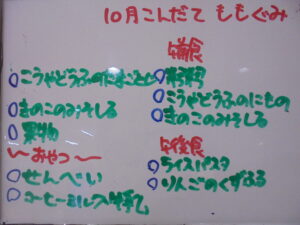 10月こんだて ももぐみ
午前食
こうやどうふのたまごとじ
きのこのみそしる
果物
〜おやつ〜
せんべい
こうやどうふのにもの
きのこのみそしる
午後食
ライスパスタ
りんごのくずに